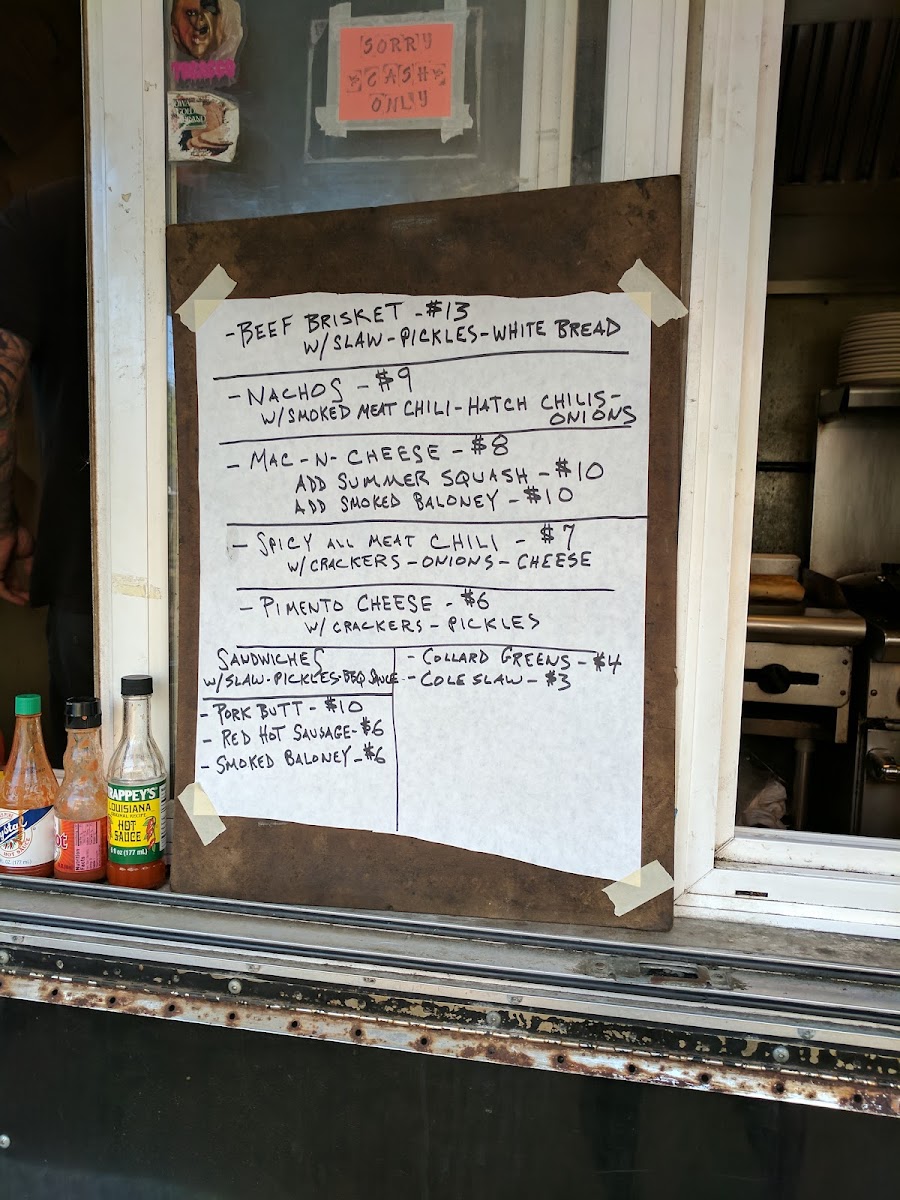 SORRY
CASH
ONLY
-BEEF BRISKET -$13
W/SLAW-PICKLES-WHITE BREAD
-NACHOS -$9
W/SMOKED MEAT CHILI-HATCH CHILIS-
ONIONS
- MAC-N-CHEESE -$8
ADD SUMMER SQUASH -$10
ADD SMOKED BALONEY -$10
- SPICY ALL MEAT CHILI - $7
W/CRACKERS-ONIONS-CHEESE
- PIMENTO CHEESE -$6
W/ CRACKERS - PICKLES
SANDWICHES
W/SLAW-PICKLES-BBQ SAUCE
- PORK BUTT -$10
- RED HOT SAUSAGE-$6
- SMOKED BALONEY-$6
- COLLARD GREENS -$4
- COLE SLAW -$3
RAPPEY'S
LOUISIANA
HOT
SAUCE